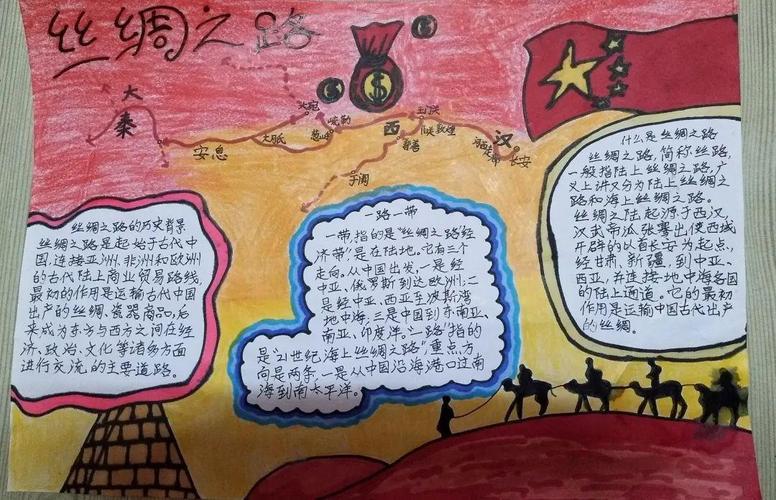 丝绸之路
大
秦
安息
大月氏
大宛
葱岭
疏勒
西
敦煌
于阗
汉
长安
丝绸之路的历史背景
丝绸之路是起始于古代中
国,连接亚洲、非洲和欧洲
的古代陆上商业贸易路线,
最初的作用是运输古代中国
出产的丝绸、瓷器商品,后
来成为东方与西方之间在经
济、政治、文化等诸多方面
进行交流的主要道路。
一路一带
一带,指的是“丝绸之路经
济带”是在陆地。它有三个
走向。从中国出发,一是经
中亚、俄罗斯到达欧洲;二
是经中亚、西亚至波斯湾
地中海;三是中国到东南亚、
南亚、印度洋。“一路”指的
是“21世纪海上丝绸之路”,重点方
向是两条,一是从中国沿海港口过南
海到南太平洋。
什么是丝绸之路
丝绸之路,简称丝路,
一般指陆上丝绸之路,广
义上讲又分为陆上丝绸之
路和海上丝绸之路。
丝绸之陆起源于西汉,
汉武帝派张骞出使西域
开辟的以首长安为起点,
经甘肃、新疆,到中亚、
西亚,并连接地中海各国
的陆上通道。它的最初
作用是运输中国古代出产
的丝绸。